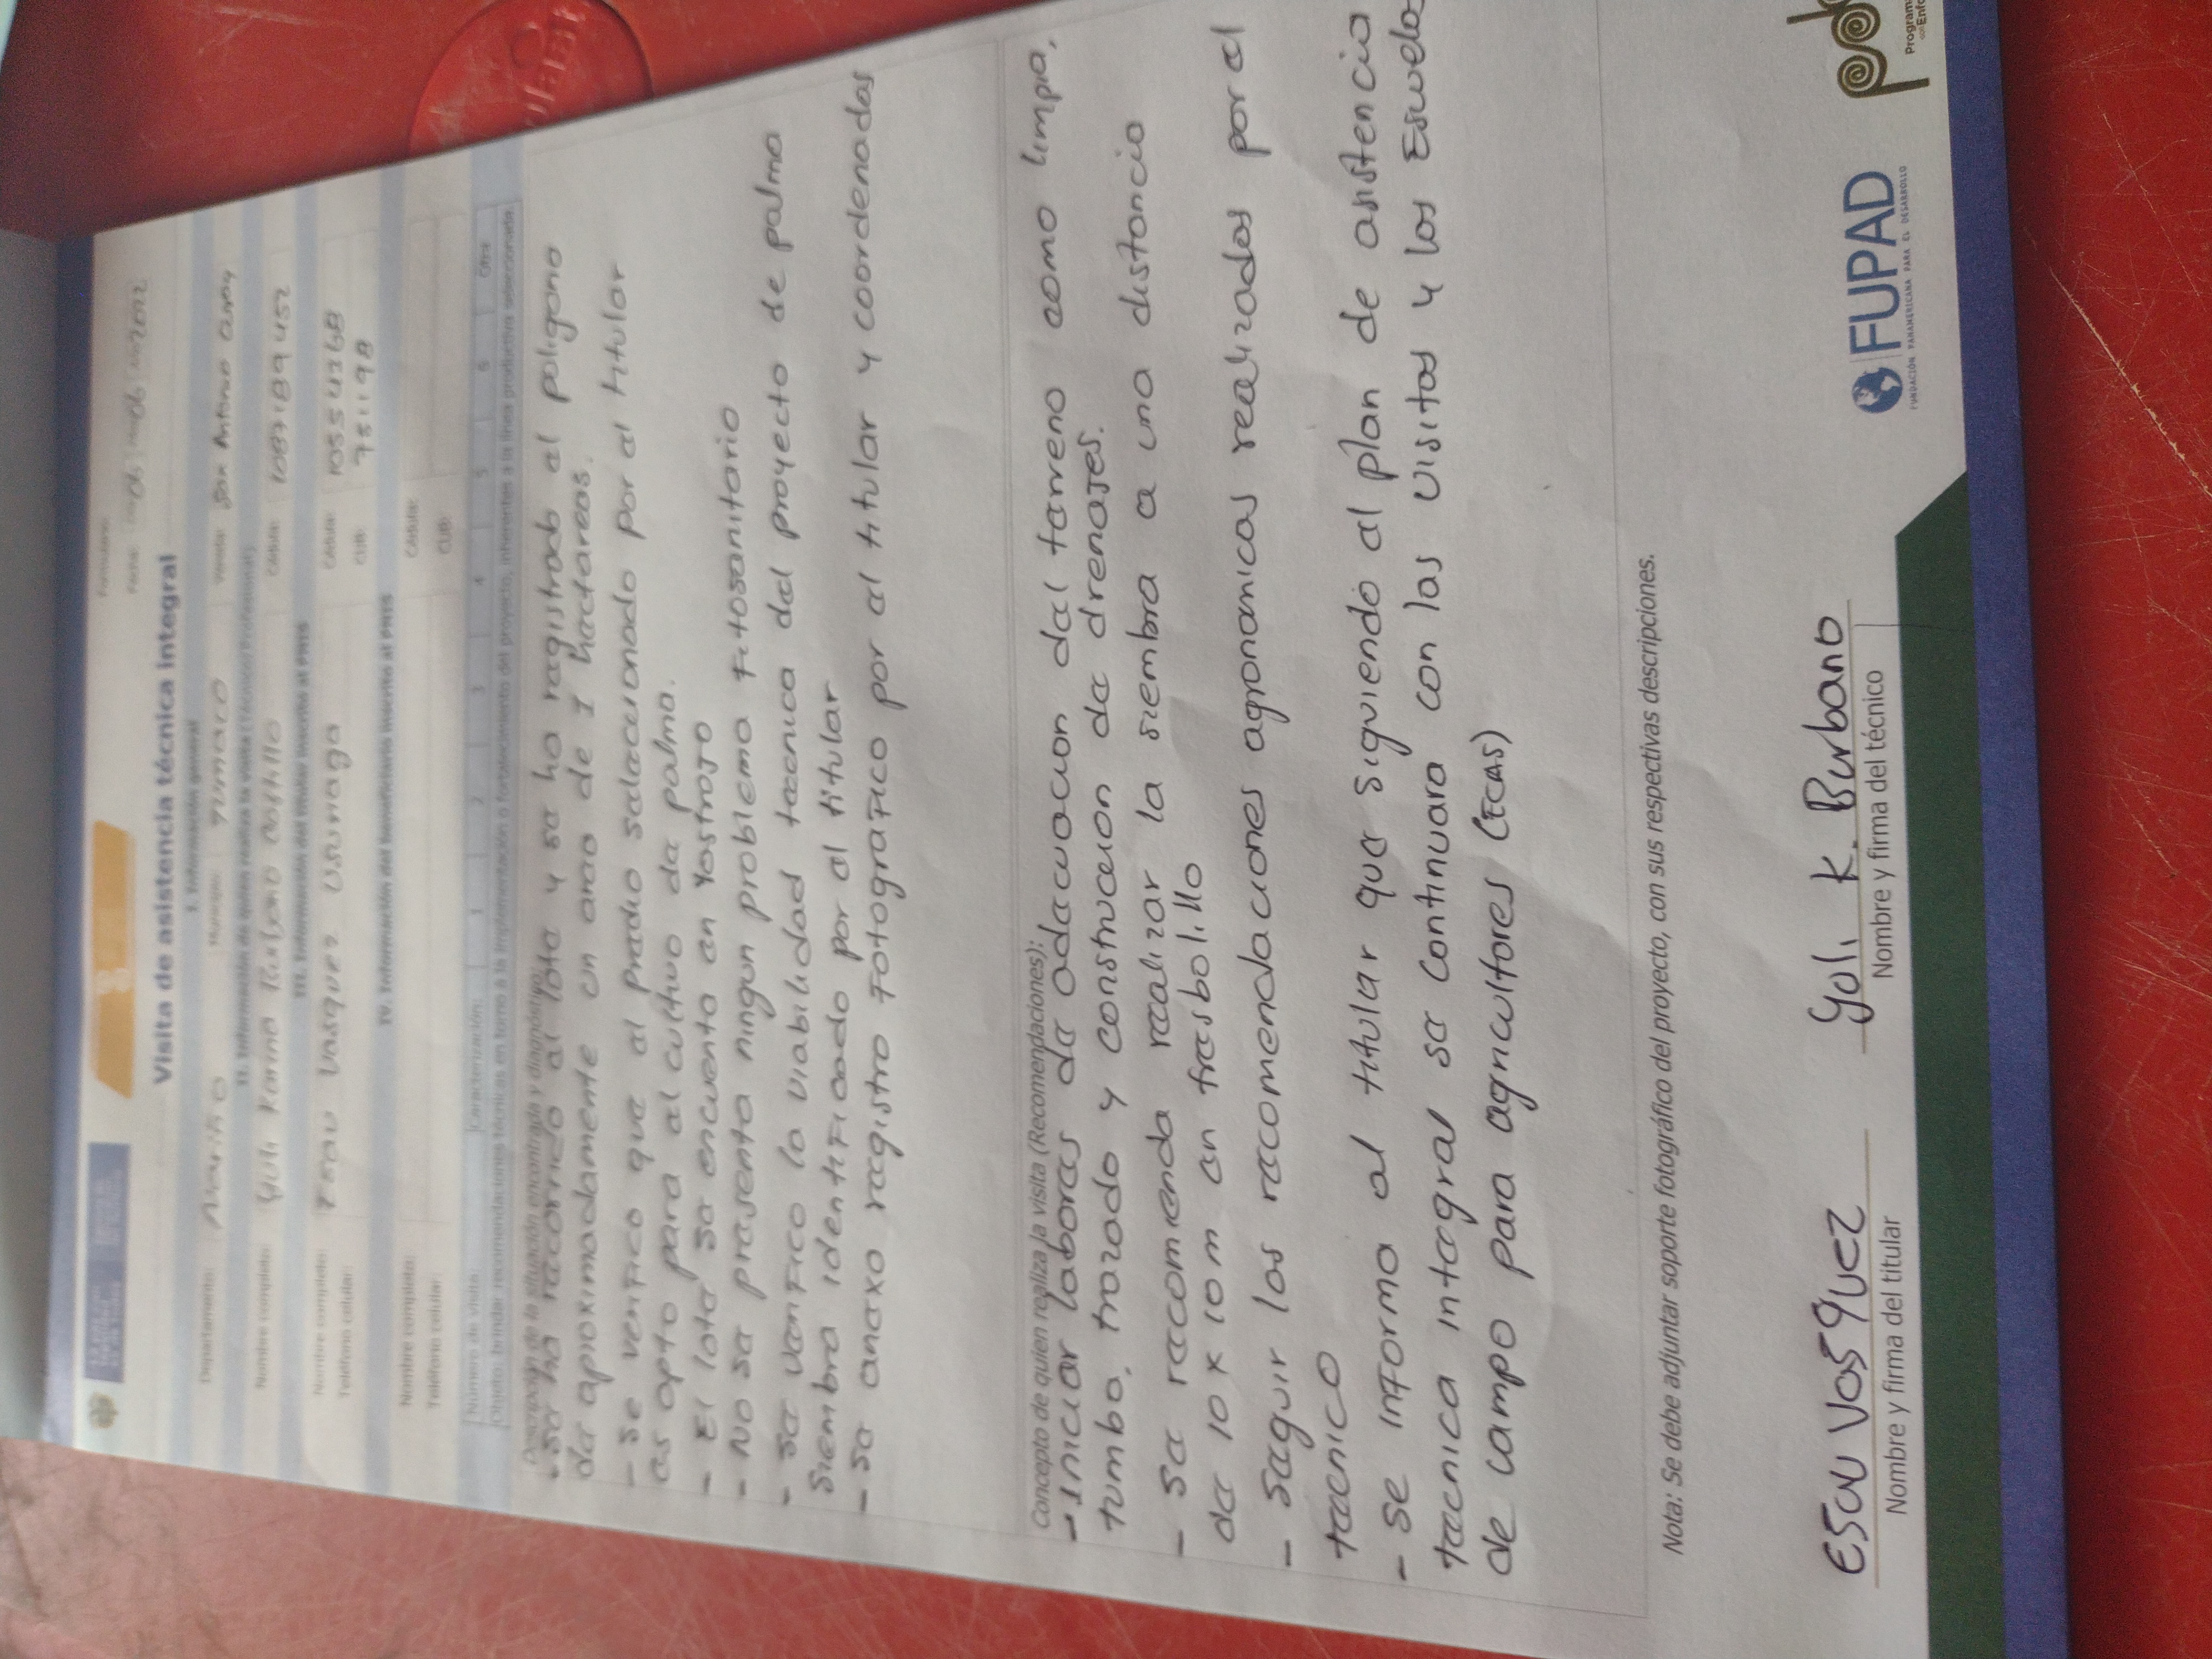 Formulario:
Fecha: 06 06 2022
Visita de asistencia técnica integral
I. Información general
Departamento: Nariño Municipio: Tumaco Vereda: San Antonio
II. Información de quien realiza la visita (Técnico/Profesional)
Nombre completo: Yuli Karina Burbano Castillo Cédula: 1087189452
III. Información del titular inscrito al PNIS
Nombre completo: Esau Vasquez Usuriaga Cédula: 105543768
Teléfono celular: CUB: 751198
IV. Información del beneficiario inscrito al PNIS
Nombre completo: Cédula:
Teléfono celular: CUB:
Número de visita: Caracterización: 1 2 3 4 5 6 Otra
Objeto: brindar recomendaciones técnicas, en torno a la implementación o fortalecimiento del proyecto, inherentes a la línea productiva seleccionada.
Descripción de la situación encontrada y diagnóstico:
- se ha recorrido el lote y se ha registrado el poligono
de aproximadamente un area de 1 hectareas.
- Se verifico que el predio seleccionado por el titular
es apto para el cultivo de palma.
- El lote se encuenta en Rastrojo
- No se presenta ningun problema Fitosanitario
- se verifico la viabilidad tecnica del proyecto de palma
siembra identificado por el titular
- se anexo registro Fotografico por el titular y coordenadas
Concepto de quien realiza la visita (Recomendaciones):
- iniciar labores de adecuacion del terreno como limpia,
tumba, trazado y construccion de drenajes.
- se recomienda realizar la siembra a una distancia
de 10 x 10 m en tresbolillo
- seguir las recomendaciones agronomicas realizadas por el
tecnico
- se informa al titular que siguiendo el plan de asistencia
tecnica integral se continuara con las visitas y las Escuelas
de campo para agricultores (ECAS)
Nota: Se debe adjuntar soporte fotográfico del proyecto, con sus respectivas descripciones.
Esau Vasquez Yuli K. Burbano
Nombre y firma del titular Nombre y firma del técnico
FUPAD
FUNDACIÓN PANAMERICANA PARA EL DESARROLLO